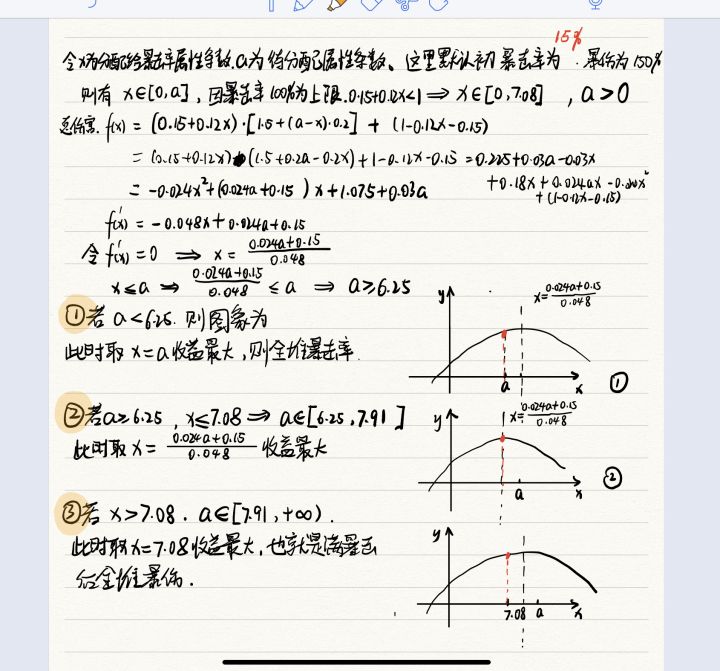 15%
令x为分配给暴击率属性条数,a为待分配属性条数、这里默认初暴击率为 . 暴伤为150%
则有 x∈[0,a], 因暴击率100%为上限.0.15+0.12x<1 ⇒ x∈[0,7.08] , a>0
总伤害. f(x) = (0.15+0.12x)·[1.5+(a-x)·0.2] + (1-0.12x-0.15)
= (0.15+0.12x)·(1.5+0.2a-0.2x)+1-0.12x-0.15 = 0.225+0.03a-0.03x
+0.18x+0.024ax-0.024x²
+(1-0.12x-0.15)
= -0.024x²+(0.024a+0.15)x+1.075+0.03a
f'(x) = -0.048x+0.024a+0.15
令 f'(x)=0 ⇒ x = (0.024a+0.15)/0.048
x≤a ⇒ (0.024a+0.15)/0.048 ≤ a ⇒ a≥6.25
①若 a<6.25. 则图象为
此时取 x=a 收益最大,则全堆暴击率.
y x=(0.024a+0.15)/0.048
a x ①
②若a≥6.25 , x≤7.08 ⇒ a∈[6.25,7.91]
此时取 x= (0.024a+0.15)/0.048 收益最大
y x=(0.024a+0.15)/0.048
a x ②
③若 x>7.08 . a∈[7.91,+∞).
此时取x=7.08收益最大,也就是满暴击
后全堆暴伤.
y
7.08 a x